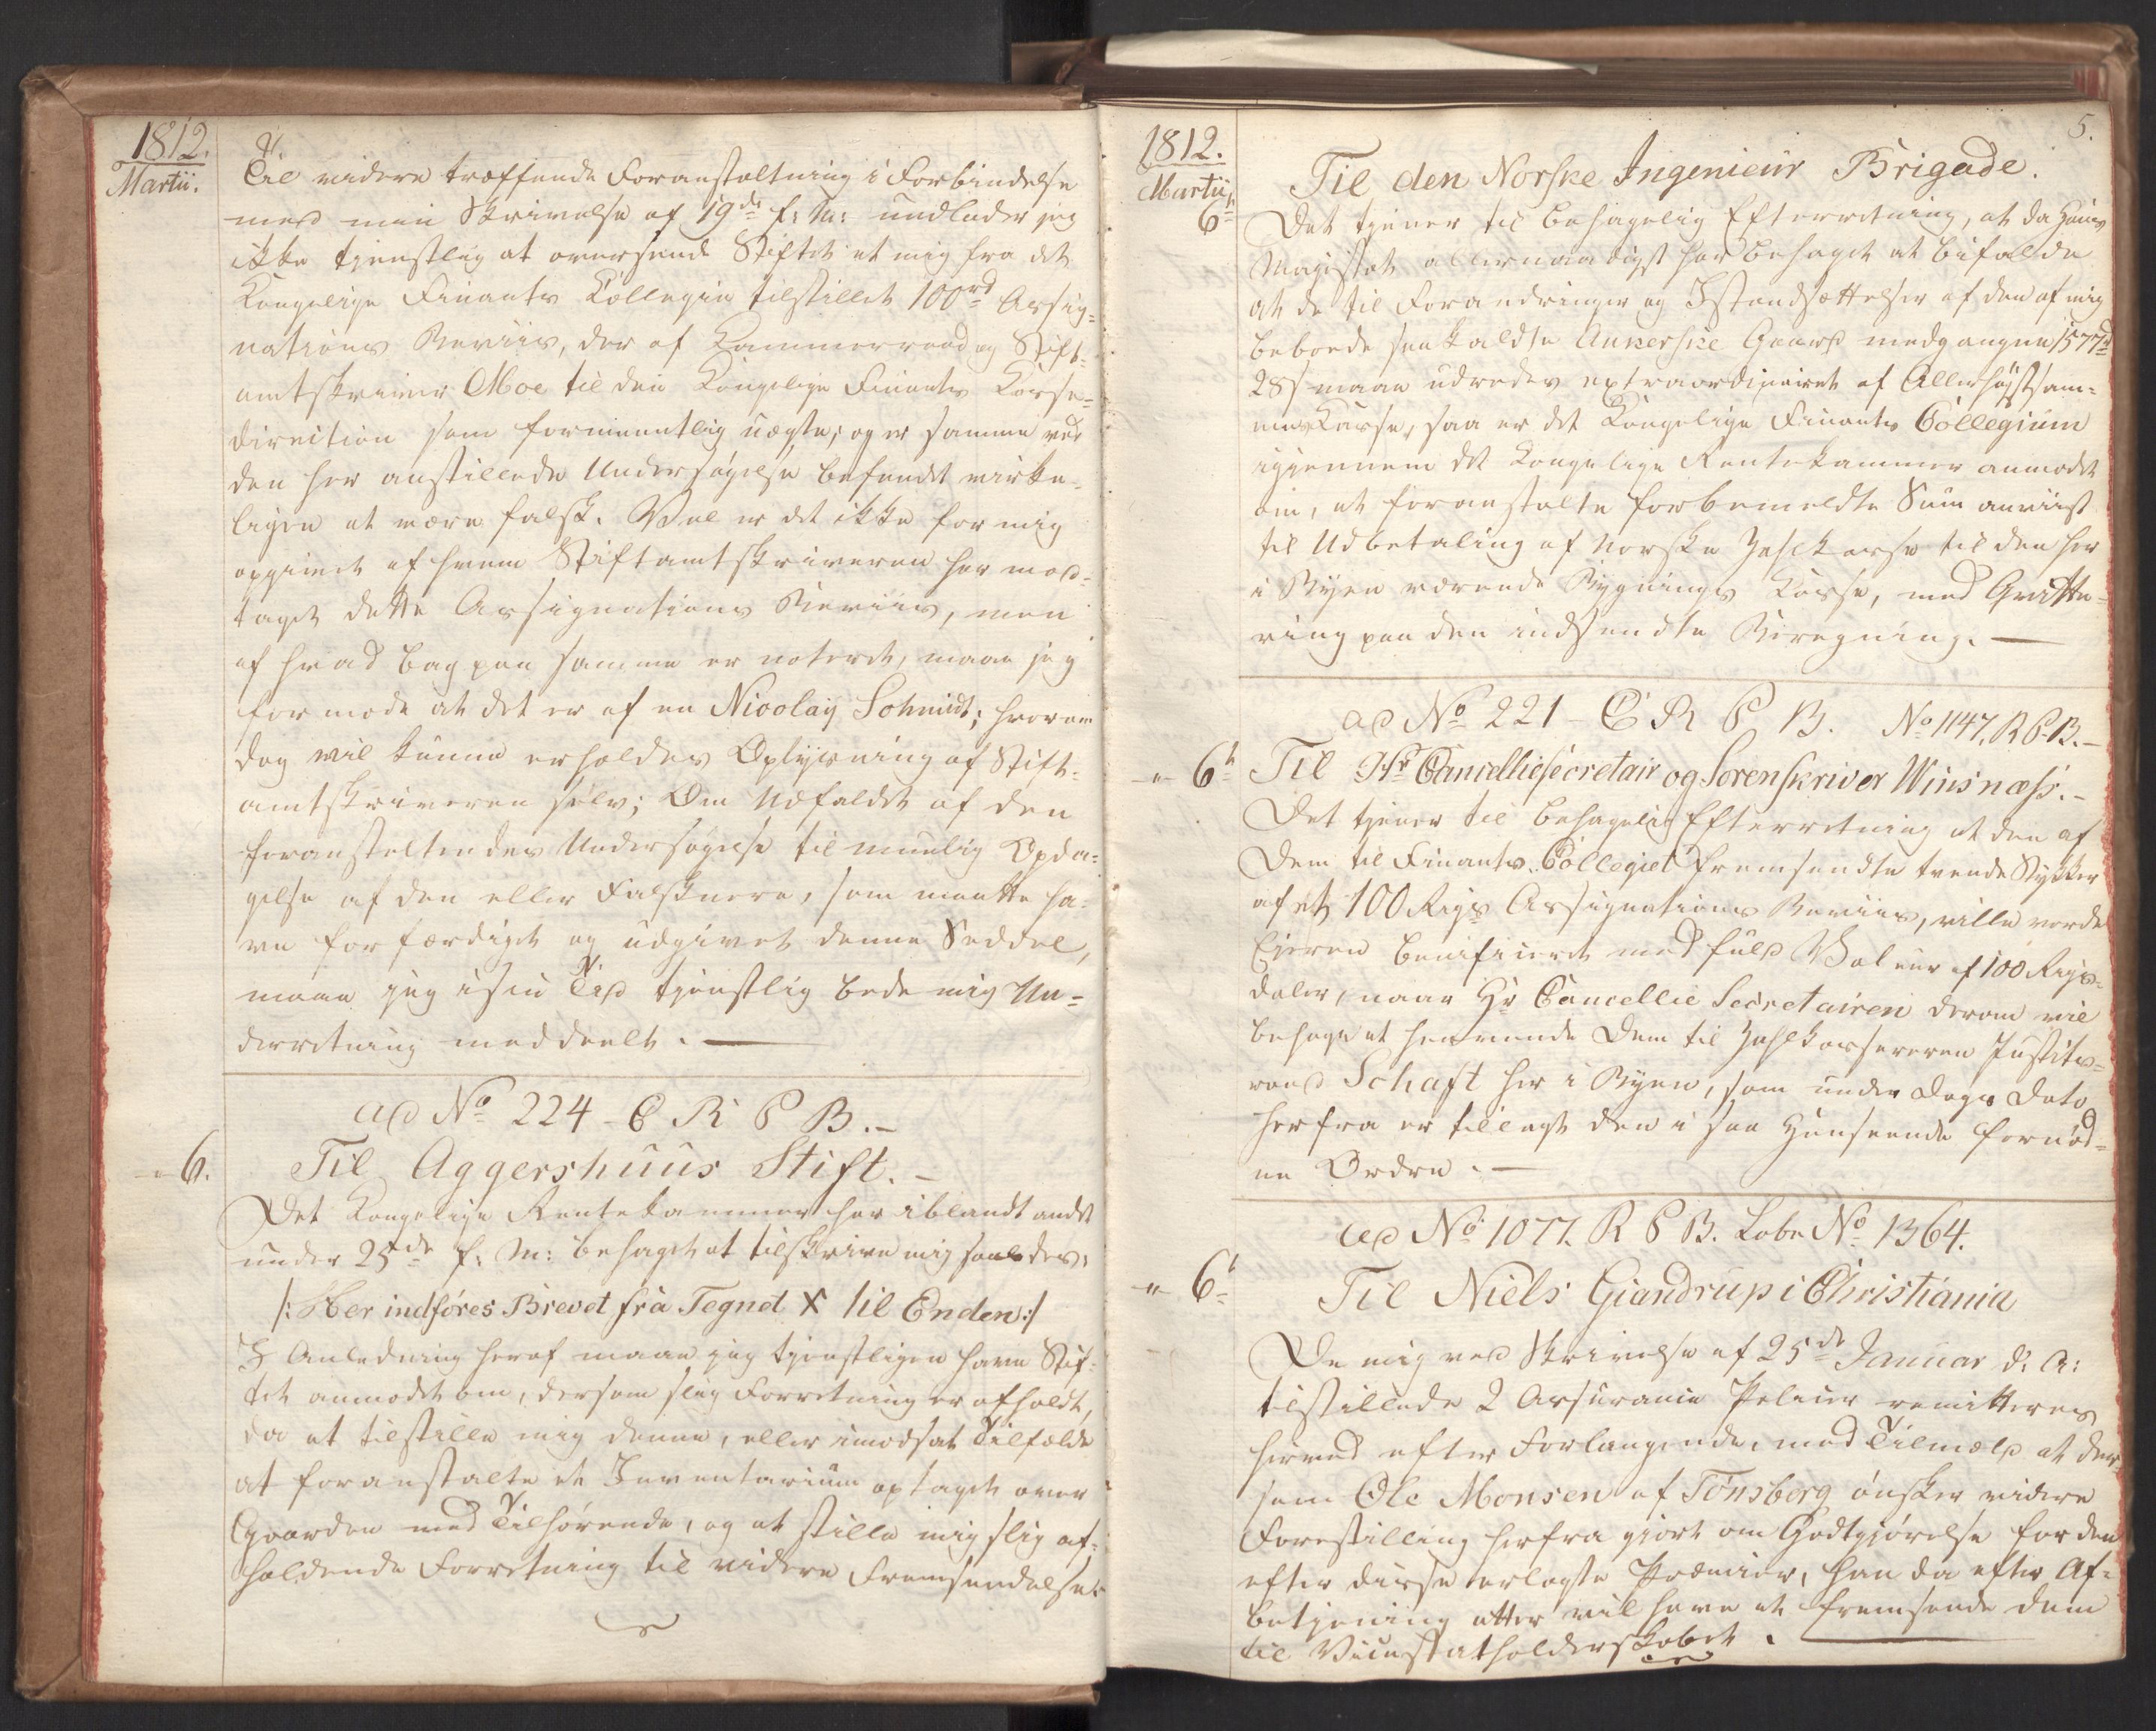 1812.
Martii.
Til videre træffende Foranstaltning i Forbindelse
med min Skrivelse af 19de f: M: undlader jeg
ikke tjenstlig at oversende Stiftet et mig fra det
Kongelige Finants Collegie tilstillet 100rd Assig-
nations Beviis, der af Kammerraad og Stift-
amtskriver Moe til den Kongelige Finants Casse-
direction som formeentlig uægte; og er samme ved
den her anstillede Undersøgelse befundet virke-
ligen at være falsk. Vel er det ikke for mig
opgivet af hvem Stiftamtskriveren har mod-
taget dette Assignations Beviis, men
af hvad bag paa samme er noteret, maae jeg
formode at det er af en Nicolay Schmidt; hvorom
dog vil kunne erholdes Oplysning af Stift-
amtskriveren selv; Om Udfaldet af den
foranstaltendes Undersøgelse til muelig Opda-
gelse af den eller Falsknere, som maatte ha-
ve forfærdiget og udgivet denne Seddel,
maae jeg i sin Tid tjenstlig bede mig Un-
derretning meddeelt. —
ad No 224 - C R P B. -
- " 6. Til Aggershuus Stift. -
Det Kongelige Rentekammer har iblandt andet
under 25de f: M: behaget at tilskrive mig saaledes:
/: Her indføres Brevet fra Tegnet X til Enden :/
I Anledning heraf maae jeg tjenstligen have Stif-
tet anmodet om, dersom slig Forretning er afholdt,
da at tilstille mig denne, eller i modsat Tilfælde
at foranstalte et Inventarium optaget over
Gaarden med Tilhørende, og at stille mig slig af-
holdende Forretning til videre Fremsendelse.
5.
1812.
Martii
6t
Til den Norske Ingenieur Brigade.
Det tjener til behagelig Efterretning, at da Hans
Majestæt allernaadigst har behaget at bifalde
at de til Forandringer og Istandsættelser af den af mig
beboede saa kaldte Ankerske Gaard medgangne 1577rd
28s maae udredes extraordinairet af Allerhøystsam-
mes Kasse, saa er det Kongelige Finants Collegium
igiennem det Kongelige Rentekammer anmodet
om, at foranstalte forbemeldte Sum anviist
til Udbetaling af Norske Zahlkasse til den her
i Byen værende Bygnings Kasse, med Qvitte-
ring paa den indsendte Beregning. —
ad No 221 - C R P B. No 1147. R P B. -
- " 6t Til Hr Cancelliesecretair og Sorenskriver Winsnæss. -
Det tjener til behagelig Efterretning at den af
Dem til Finants Collegiet fremsendte tvende Stykker
af et 100 Rigs Assignations Beviis, ville vorde
Eieren benificeret med fuld Valeur af 100 Rigs-
daler, naar Hr Cancellie Secretairen derom vil
behage at henvende Dem til Zahlkassereren Justits-
raad Schaft her i Byen, som under Dags Dato
herfra er tillagt den i saa Henseende fornød-
ne Ordre. —
ad No 1077. R P B. Løbe No 1364.
- " 6t Til Niels Giandrup i Christiania
De mig ved Skrivelse af 25de Januar d: A:
tilstillede 2 Assurance Policer remitteres
herved efter Forlangende, med Tilmæld at der-
som Ole Monsen af Tønsberg ønsker videre
Forestilling herfra gjort om Godtgjørelse for den
efter disse erlagte Præmier, han da efter Af-
betjening atter vil have at fremsende dem
til Vicestatholderskabet. —